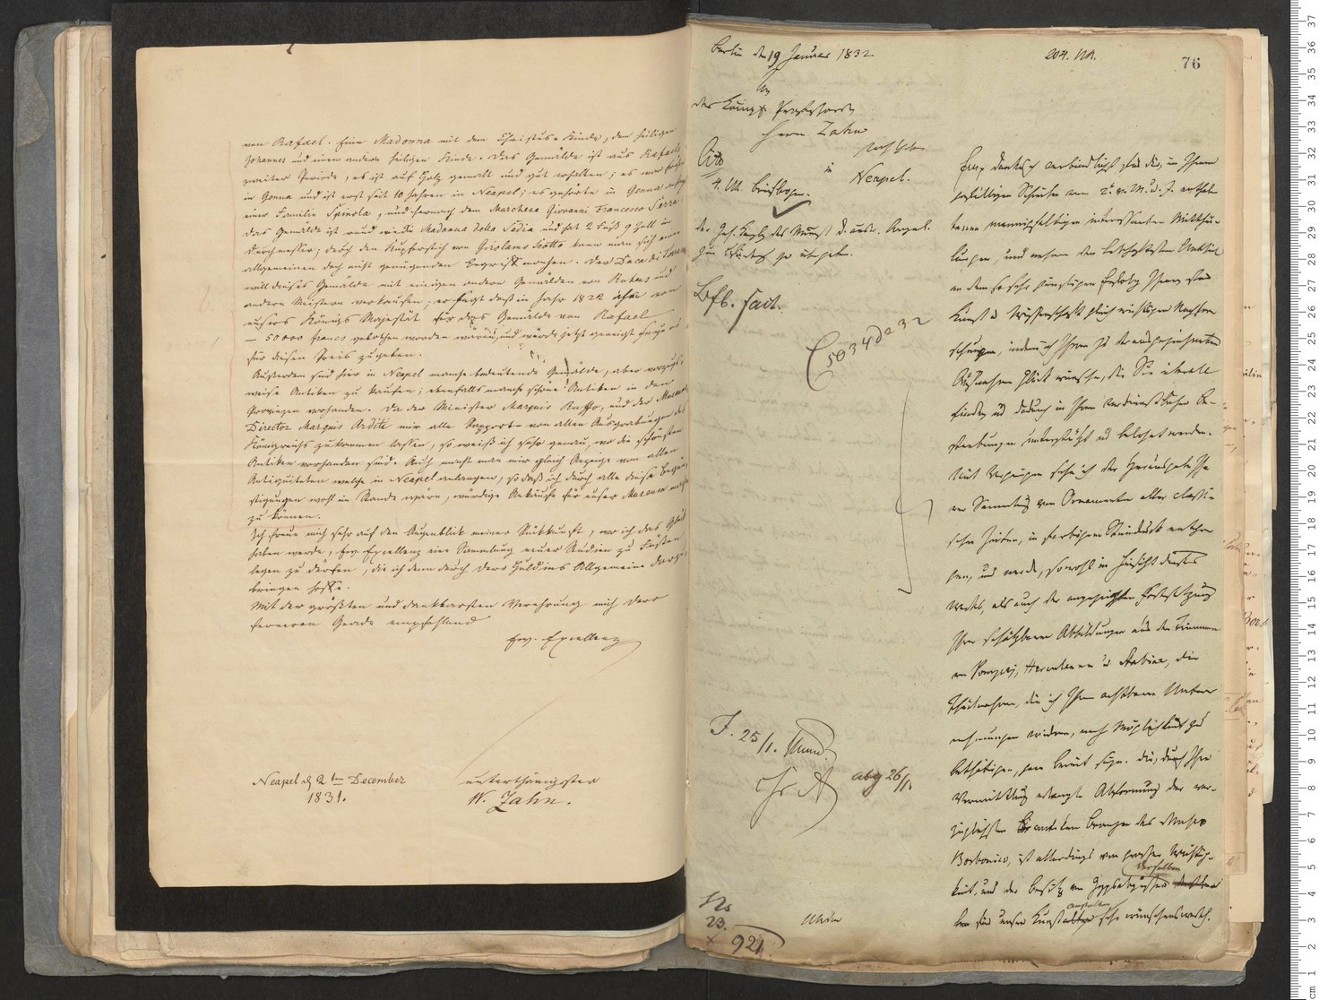 von Rafael. Eine Madonna mit dem Christus-Kinde, dem heiligen
Johannes und einem andern heiligen Kinde. Das Gemälde ist aus Rafaels
zweiter Periode, es ist auf Holz gemalt und gut erhalten; es war früher
in Genua und ist erst seit 10 Jahren in Neapel; es gehörte in Genua
einer Familie Spinola, und hernach dem Marchese Giovanni Francesco Serra.
Das Gemälde ist rund wie die Madonna della Sedia und hat 2 Fuß 9 Zoll im
Durchmesser; durch den Kupferstich von Girolamo Scotto kann man sich einen
allgemeinen doch nicht genügenden Begriff machen. Der Duca di
will dieses Gemälde mit einigen andern Gemälden von Rubens und
andern Meistern verkaufen; er sagt daß im Jahr 1822 ihm von
unsers Königs Majestät für das Gemälde von Rafael
— 50000 francs gebothen worden wären, und würde jetzt geneigt seyn es
für diesen Preis zu geben.
Außerdem sind hier in Neapel manche bedeutende Gemälde, aber vorzugs-
weise Antiken zu kaufen; ebenfalls manche schöne Antiken in den
Provinzen vorhanden. Da der Minister Marquis Ruffo, und der Museums
Director Marquis Arditi mir alle Rapporte von allen Ausgrabungen des
Königreichs zukommen lassen, so weiß ich sehr genau, wo die schönsten
Antiken vorhanden sind. Auch macht man mir gleich Anzeige von allen
Antiquitäten welche in Neapel anlangen, so daß ich durch alle diese
stigungen wohl im Stande wäre, würdige Ankäufe für unser Museum machen
zu können.
Ich freue mich sehr auf den Augenblick meiner Rückkunft, wo ich das Glück
haben werde, Ew. Excellenz eine Sammlung neuer Studien zu Füßen
legen zu dürfen, die ich dann durch Dero Huld ins Allgemeine
bringen hoffe.
Mit der größten und dankbarsten Verehrung mich Dero
ferneren Gnade empfehlend
Ew. Excellenz
Neapel d 2ten December
1831.
unterthänigster
W. Zahn.
Berlin den 19 Januar 1832
204. UA.
76
An
den Königl. Professor
Herrn Zahn
in Neapel.
Cito
4. Ut. Briefbogen.
Bfb. fact.
5034 de 32
J. 25/1.
abg 26/1.
23.
921
Ew. danke ich verbindlichst für die, in Ihrem
gefälligen Schreiben vom 2. v. M. u. J. enthal-
tenen mannichfaltigen interessanten Mitthei-
lungen, und nehme den lebhaftesten Antheil
an dem so sehr günstigen Erfolge Ihrer für
Kunst u Wissenschaft gleich wichtigen Nachfor-
schungen, indem ich Ihnen zu der
Aufnahme Glück wünsche, die Sie überall
finden und dadurch in Ihren verdienstlichen Be-
strebungen unterstützt und belohnt werden.
Mit Vergnügen sehe ich der Herausgabe
der Sammlung von Ornamenten aller classi-
schen Zeiten, in farbigem Steindruck entge-
gen, und werde, sowohl in Hinsicht dieses
Werks, als auch der angezeigten Fortsetzung
Ihrer schätzbaren Abbildungen aus den Trümmern
von Pompeji, Herculanum u Stabiae, die
Theilnahme, die ich Ihren achtbaren Unter-
nehmungen widme, nach Möglichkeit zu
bethätigen, gern bereit seyn. Die, durch Ihre
Vermittlung erlangte Abformung der vor-
züglichsten antiken Bronzen des Museo
Borbonico, ist allerdings von großer Wichtig-
keit, und der Besitz von Gypsabgüssen derselben
für unsere Kunstanstalten sehr wünschenswerth.